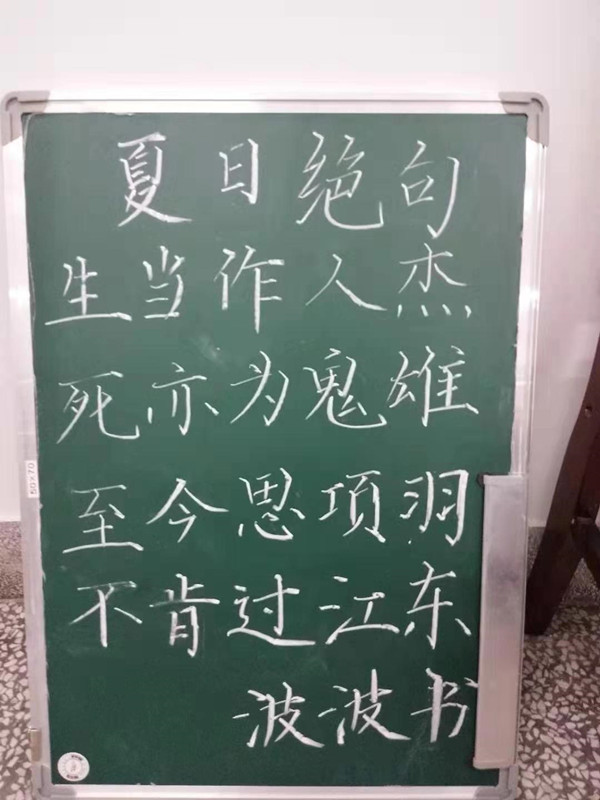 夏日绝句
生当作人杰
死亦为鬼雄
至今思项羽
不肯过江东
波波书
50×70